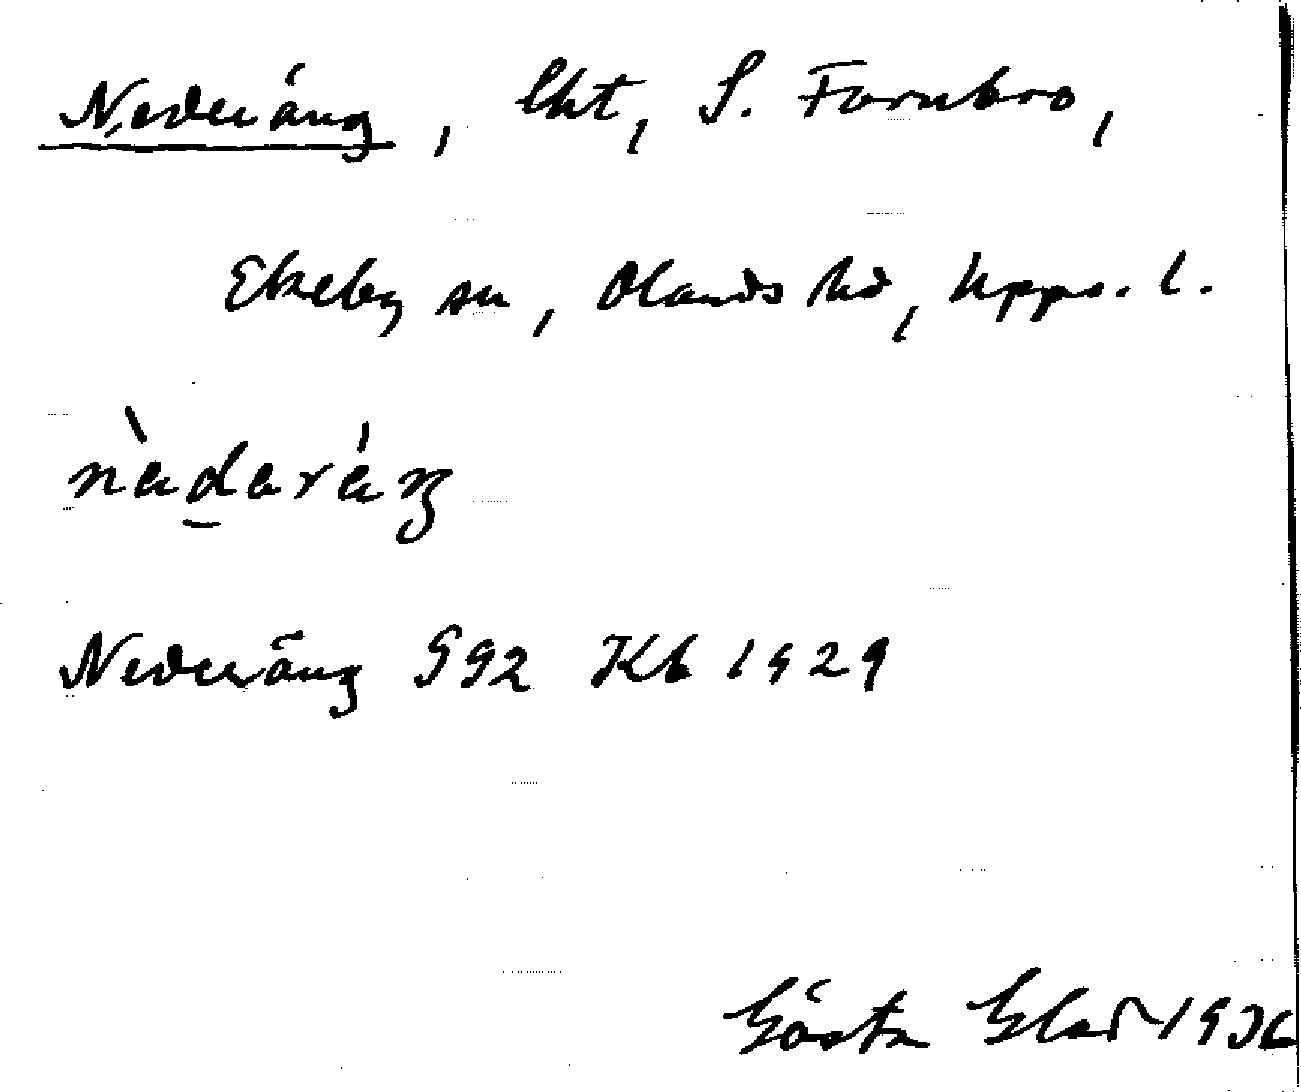 Nederäng, lht, S. Fornbro,
Ekeby sn, Olands hd, Upps. l.
Nederäng 592 Kb 1929
Gösta 1936